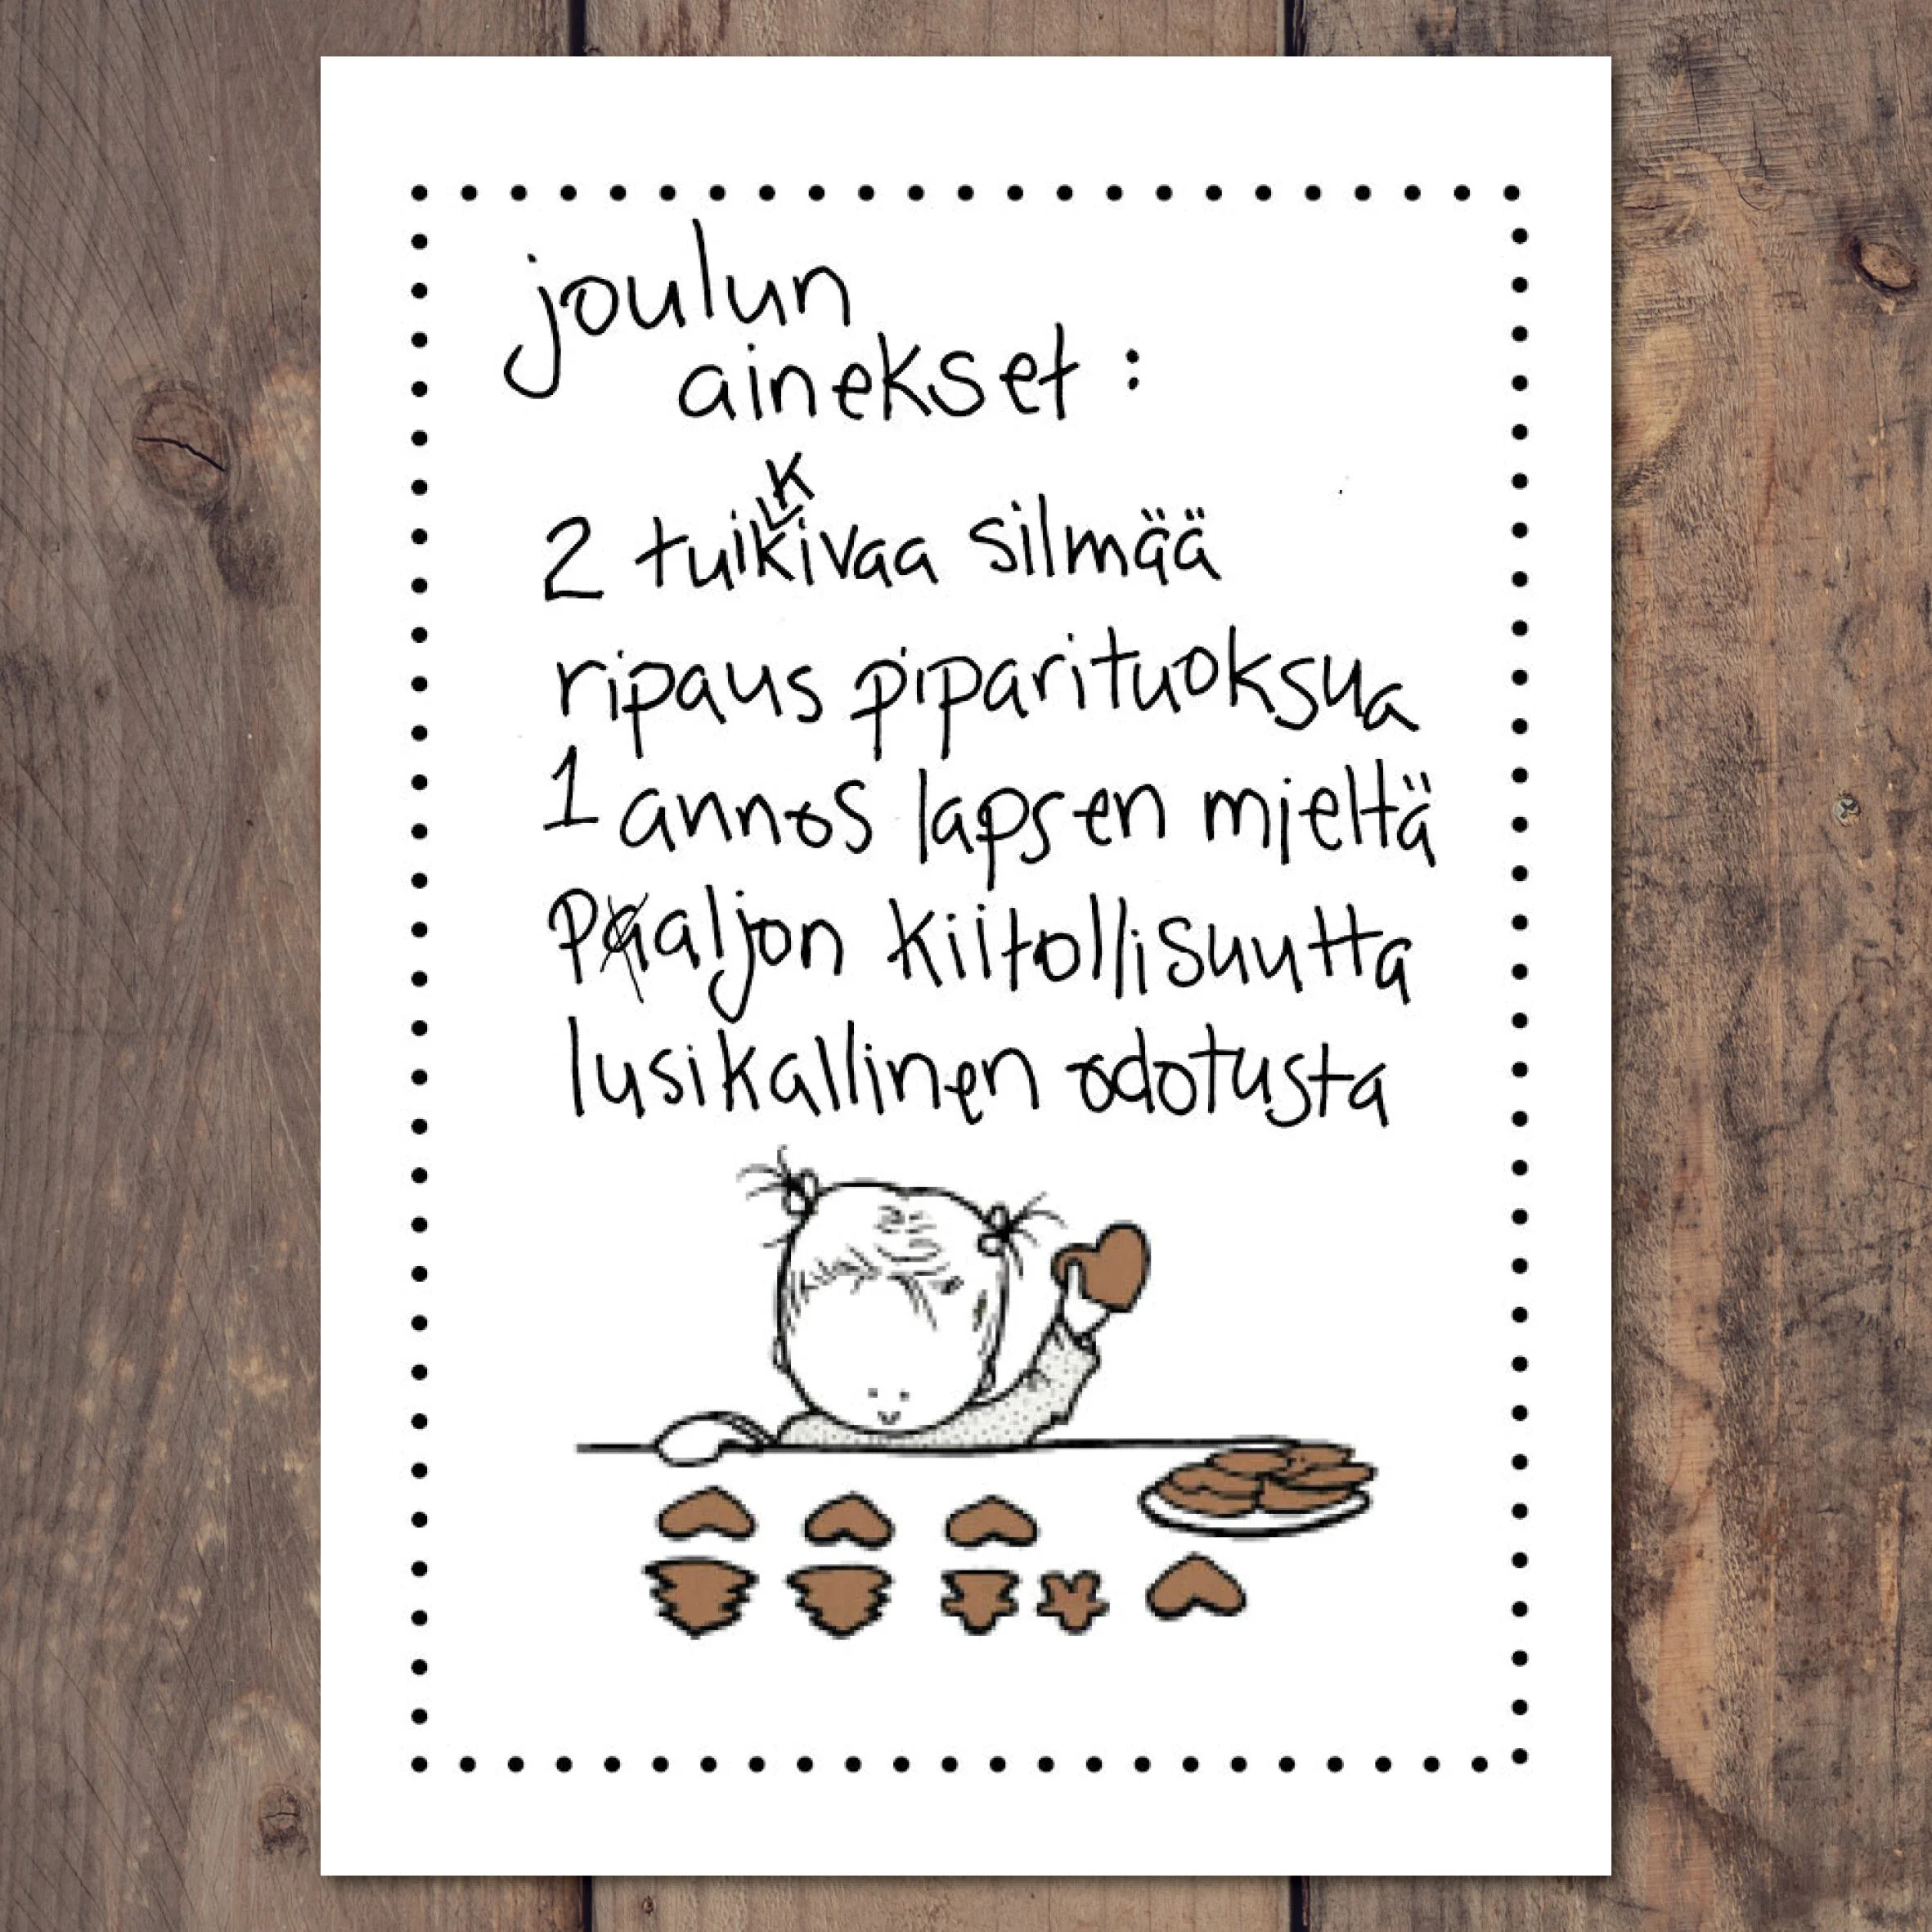 joulun
ainekset:
2 tuikkivaa silmää
ripaus piparituoksua
1 annos lapsen mieltä
paljon kiitollisuutta
lusikallinen odotusta